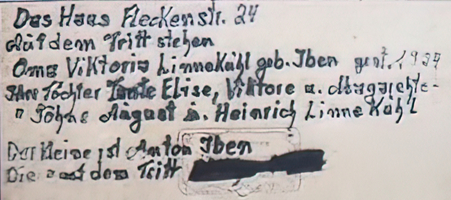 Das Haus Fleckenstr. 24
Auf dem Tritt stehen
Oma Viktoria Linnekühl geb. Iben gest. 1934
Ihre Töchter Tante Elise, Viktore u. Margarethe-
" Söhne August u. Heinrich Linne Kühl
Der kleine ist Anton Iben
Die auf dem Tritt